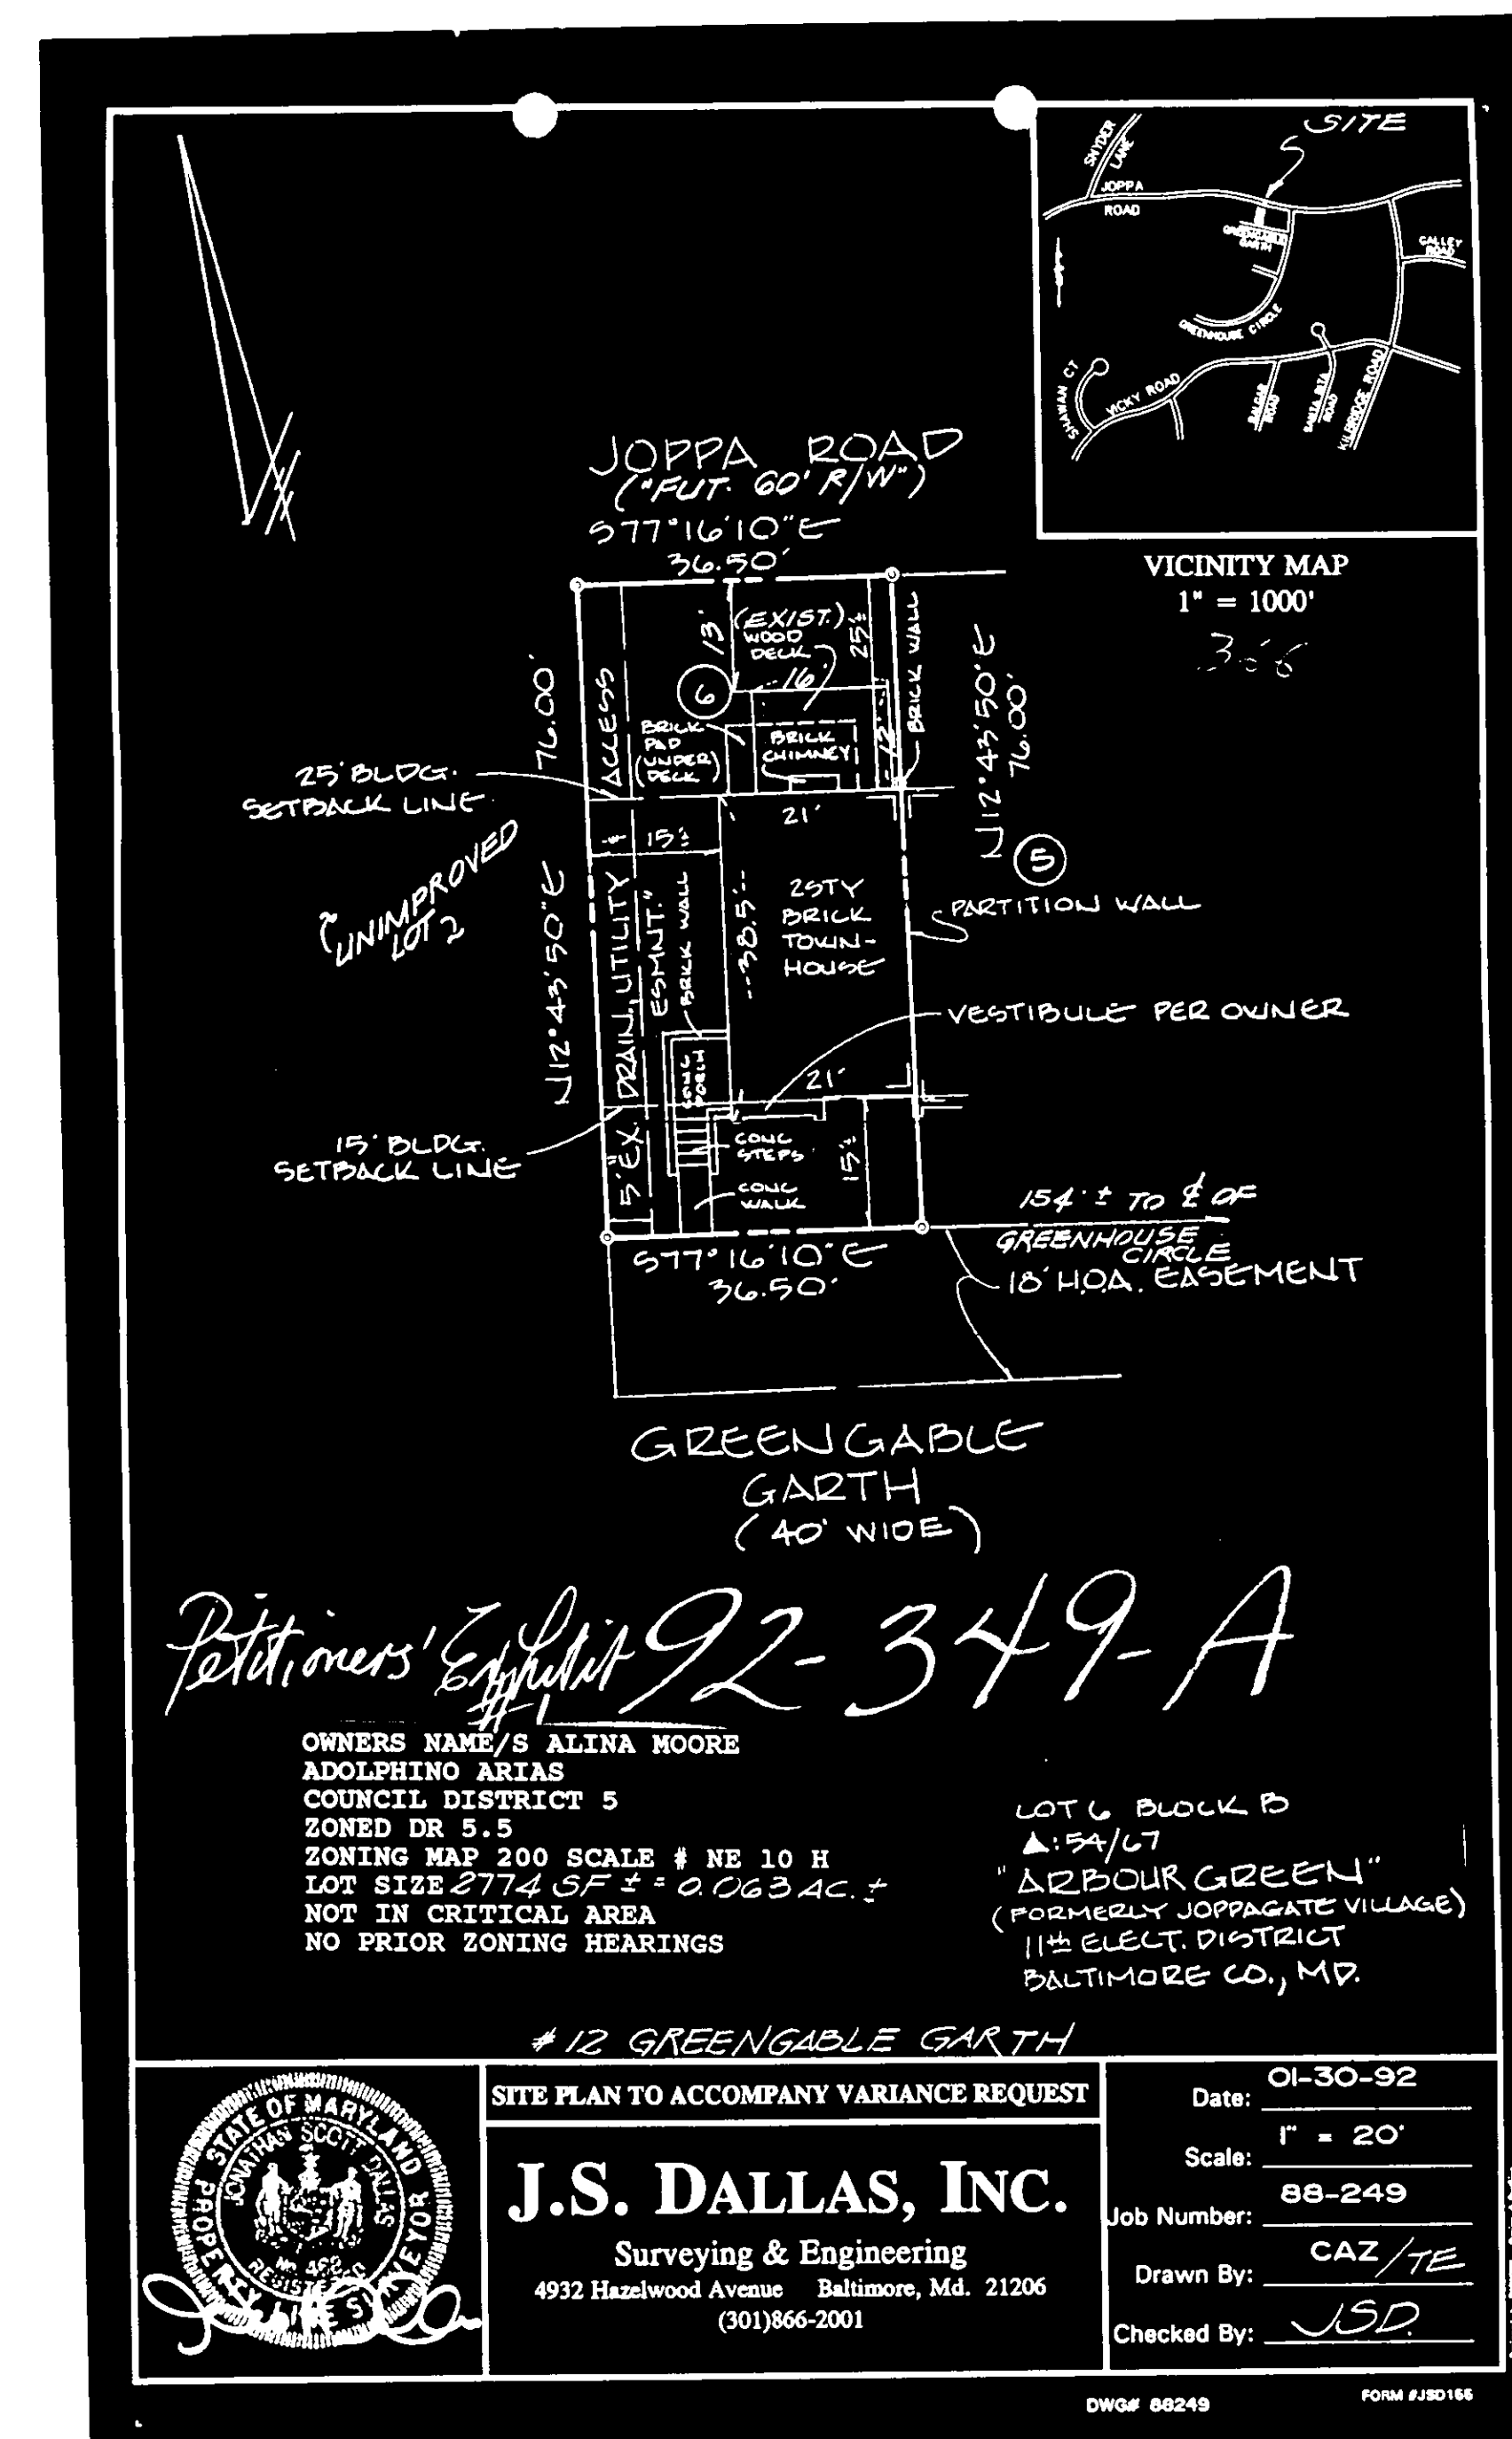 SITE
SNYDER
LANE
JOPPA
ROAD
GREENGABLE
GARTH
GALLEY
ROAD
GREENHOUSE CIRCLE
SHAWAN CT
VICKY ROAD
BALGAR
ROAD
SANTA RITA
ROAD
KILBRIDGE ROAD
VICINITY MAP
1" = 1000'
366
JOPPA ROAD
("FUT. 60' R/W")
S77°16'10"E
36.50'
13'
(EXIST.)
WOOD
DECK
25'±
16'
BRICK WALL
6
BRICK
PAD
(UNDER)
DECK
BRICK
CHIMNEY
12'
76.00'
N12°43'50"E
76.00'
25' BLDG.
SETBACK LINE
21'
15'±
5
"UNIMPROVED
LOT"
N12°43'50"E
5' EX. DRAIN, UTILITY & ACCESS
ESMNT."
BRICK WALL
38.5'
2STY
BRICK
TOWN-
HOUSE
PARTITION WALL
VESTIBULE PER OWNER
CONC
PORCH
21'
15' BLDG.
SETBACK LINE
CONC
STEPS
15'±
CONC
WALK
154'± TO ℄ OF
GREENHOUSE
CIRCLE
18' H.O.A. EASEMENT
S77°16'10"E
36.50'
GREENGABLE
GARTH
(40' WIDE)
Petitioners' Exhibit 92-349-A
#1
OWNERS NAME/S ALINA MOORE
ADOLPHINO ARIAS
COUNCIL DISTRICT 5
ZONED DR 5.5
ZONING MAP 200 SCALE # NE 10 H
LOT SIZE 2774 SF ± = 0.063 AC. ±
NOT IN CRITICAL AREA
NO PRIOR ZONING HEARINGS
LOT 6 BLOCK B
▲: 54/67
"ARBOUR GREEN"
(FORMERLY JOPPAGATE VILLAGE)
11th ELECT. DISTRICT
BALTIMORE CO., MD.
#12 GREENGABLE GARTH
STATE OF MARYLAND
PROPERTY LINE SURVEYOR
JONATHAN SCOTT DALLAS
REGISTERED
SITE PLAN TO ACCOMPANY VARIANCE REQUEST
J.S. DALLAS, INC.
Surveying & Engineering
4932 Hazelwood Avenue Baltimore, Md. 21206
(301)866-2001
Date: 01-30-92
Scale: 1" = 20'
Job Number: 88-249
Drawn By: CAZ/TE
Checked By: JSD.
DWG# 88249
FORM #JSD155